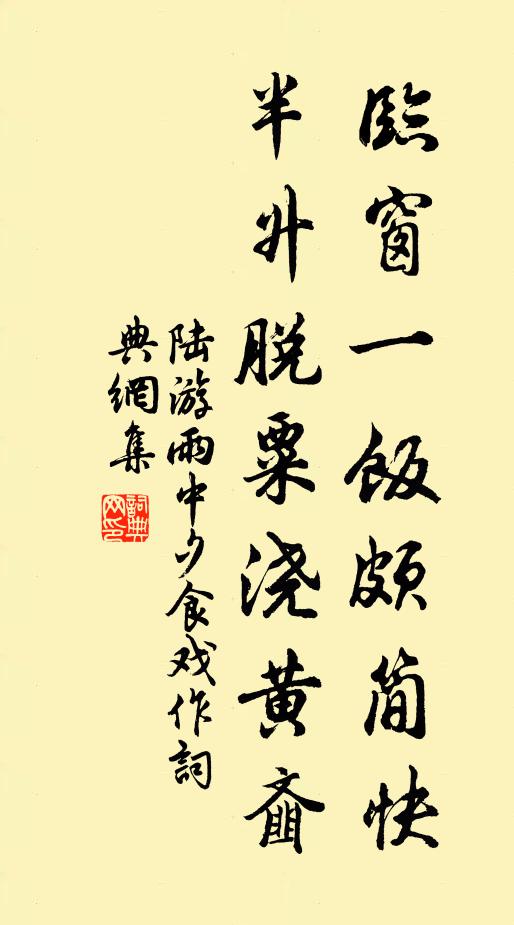 臨窗一飯頗简快
半升脫粟浇黃齑
陆游雨中夕食戏作詞
典網集
詞典
网印